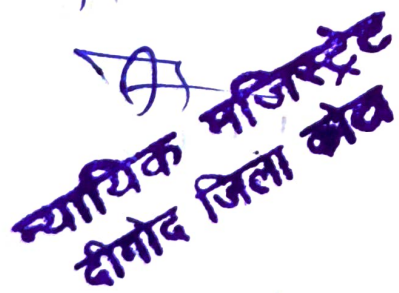 न्यायिक मजिस्ट्रेट
दीगोद जिला कोटा